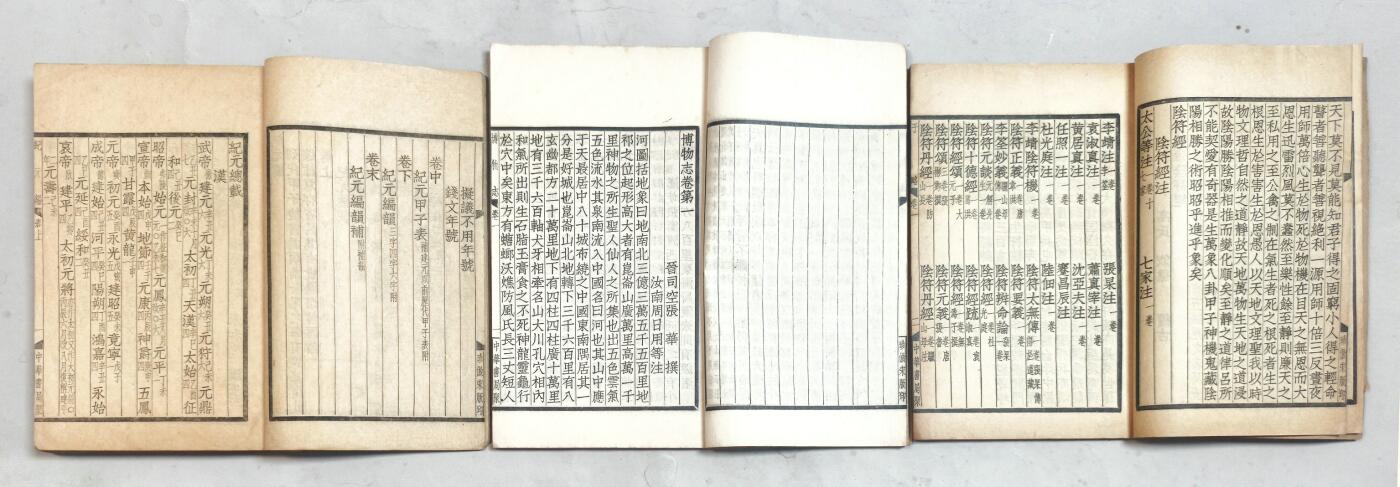 擬議不用年號
錢文年號
卷中
紀元甲子表
卷下
紀元編韻
三字四字六字附
卷末
紀元編韻補
紀元總載
漢
武帝 建元 元光 元朔 元狩 元鼎
元封 太初 天漢 太始 征
和 後元
昭帝 始元 元鳳 元平
宣帝 本始 地節 元康 神爵 五鳳
甘露 黃龍
元帝 初元 永光 建昭 竟寧
成帝 建始 河平 陽朔 鴻嘉 永始
元延 綏和
哀帝 建平 太初元將
元壽
中華書局聚
博物志卷第一
晉司空張華撰
汝南周日用等注
河圖括地象曰地南北三億三萬五千五百里地
祁之位起形高大者有崑崙山廣萬里高萬一千
里神物之所生聖人仙人之所集也出五色雲氣
五色流水其泉南流入中國名曰河也其山中應
于天最居中八十城布繞之中國東南隅居其一
分是好城也崑崙山北地轉下三千六百里有八
玄幽都方二十萬里地下有四柱四柱廣十萬里
地有三千六百軸犬牙相牽名山大川孔穴相內
和氣所出則生石脂玉膏食之不死神龍靈龜行
於穴中矣東方有螗螂沃燋防風氏長三丈短人
中華書局聚
珍倣宋版印
天下莫不見莫能知君子得之固窮小人得之輕命
瞽者善聽聾者善視絕利一源用師十倍三反晝夜
用師萬倍心生於物死於物機在目天之無恩而大
恩生迅雷烈風莫不蠢然至樂性餘至靜則廉天之
至私用之至公禽之制在氣生者死之根死者生之
根恩生於害害生於恩愚人以天地文理聖我以時
物文理哲自然之道靜故天地萬物生天地之道浸
故陰陽勝陰陽相推而變化順矣至靜之道律呂所
不能契爰有奇器是生萬象八卦甲子神機鬼藏陰
陽相勝之術昭昭乎進乎象矣
陰符經
陰符經注
太公等注 七家注一卷
李靖注 一卷 張杲注 一卷
袁淑真注 一卷 蕭真宰注 一卷
黃居真注 一卷 沈亞夫注 一卷
任照一注 一卷 蹇昌辰注 一卷
杜光庭注 一卷 陸佃注 一卷
李靖陰符機 一卷 陰符太無傳 一卷
陰符正義 一卷 陰符要義 一卷
李筌妙義 一卷 陰符辨命論 一卷
陰符元談 一卷 陰符經 一卷
陰符十德經 一卷 陰符經疏
陰符經頌 一卷 陰符經 一卷
陰符頌 一卷 陰符元義 一卷
陰符丹經 一卷 陰符丹經 一卷
中華書局聚